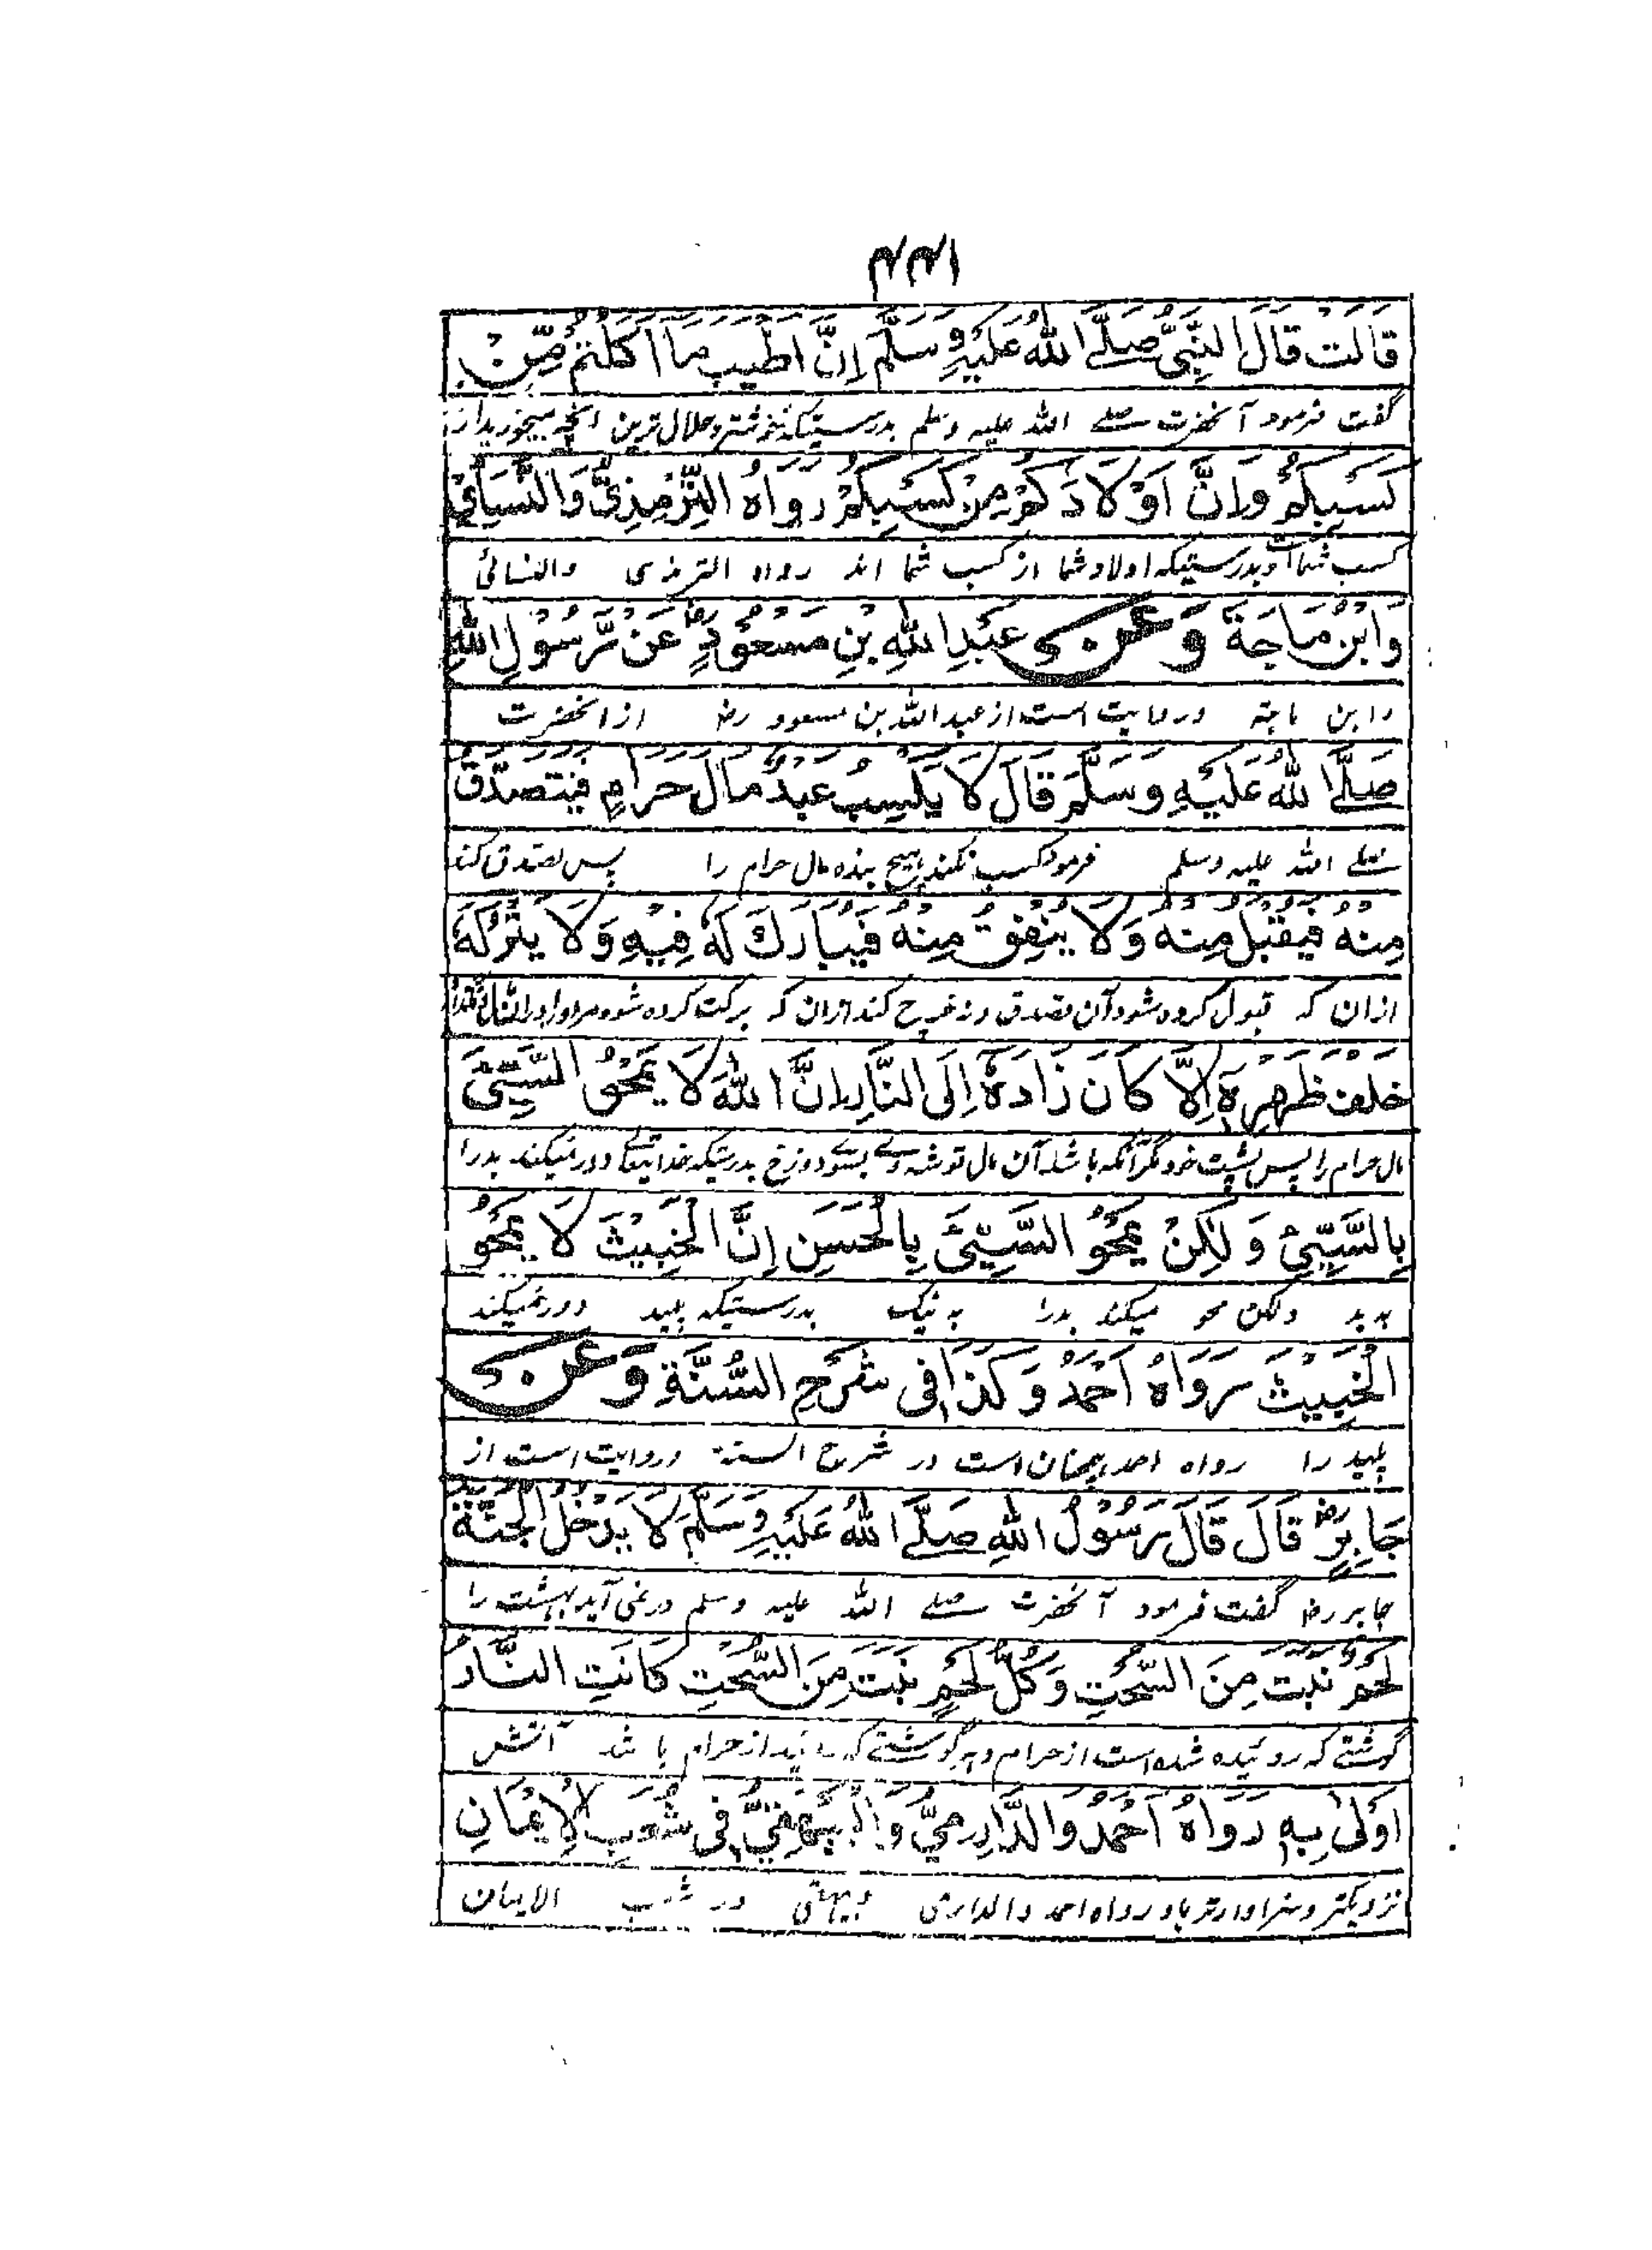 ۴۴۱
قَالَتْ قَالَ النَّبِيُّ صَلَّے اللهُ عَلَيْهِ وَسَلَّمَ اِنَّ اَطْيَبَ مَا اَكَلْتُمْ مِّنْ
گفت فرمود آنحضرت صلے الله علیه وسلم بدرستیکه خوشتر و حلال ترین انچه میخورید از
كَسْبِكُمْ وَاِنَّ اَوْلَادَكُمْ مِنْ كَسْبِكُمْ رَوَاهُ التِّرْمِذِيُّ وَالنَّسَائِيُّ
کسب شما است و بدرستیکه اولاد شما از کسب شما اند رواه الترمذی والنسائی
وَابْنُ مَاجَةَ وَعَنْ عَبْدِ اللهِ بْنِ مَسْعُوْدٍ رض عَنْ رَّسُوْلِ اللهِ
وابن ماجه وروایت است از عبد الله بن مسعود رض از آنحضرت
صَلَّے اللهُ عَلَيْهِ وَسَلَّمَ قَالَ لَا يَكْسِبُ عَبْدٌ مَالَ حَرَامٍ فَيَتَصَدَّقُ
صلے الله علیه وسلم فرمود کسب نکند هیچ بنده مال حرام را پس تصدق کند
مِنْهُ فَيُقْبَلُ مِنْهُ وَلَا يُنْفِقُ مِنْهُ فَيُبَارَكُ لَهُ فِيْهِ وَلَا يَتْرُكُهُ
ازان که قبول کرده شود آن تصدق ونه خرچ کند ازان که برکت کرده شود مر او را دران
خَلْفَ ظَهْرِهٖ اِلَّا كَانَ زَادَهٗ اِلَى النَّارِ اِنَّ اللهَ لَا يَمْحُو السَّيِّئَ
مال حرام را پس پشت خود مگر آنکه باشد آن مال توشه وے بسوے دوزخ بدرستیکه خدایتعالے دور نمیکند بدرا
بِالسَّيِّئِ وَلٰكِنْ يَمْحُو السَّيِّئَ بِالْحَسَنِ اِنَّ الْخَبِيْثَ لَا يَمْحُو
به بد ولکن محو میکند بدرا به نیک بدرستیکه پلید دور نمیکند
الْخَبِيْثَ رَوَاهُ اَحْمَدُ وَكَذَا فِي شَرْحِ السُّنَّةِ وَعَنْ
پلید را رواه احمد همچنان است در شرح السنة وروایت است از
جَابِرٍ رض قَالَ قَالَ رَسُوْلُ اللهِ صَلَّے اللهُ عَلَيْهِ وَسَلَّمَ لَا يَدْخُلُ الْجَنَّةَ
جابر رض گفت فرمود آنحضرت صلے الله علیه وسلم در نمی آید بهشت را
لَحْمٌ نَبَتَ مِنَ السُّحْتِ وَكُلُّ لَحْمٍ نَبَتَ مِنَ السُّحْتِ كَانَتِ النَّارُ
گوشتے که روئیده شده است از حرام و هر گوشتے که از حرام باشد آتش
اَوْلٰى بِهٖ رَوَاهُ اَحْمَدُ وَالدَّارِمِيُّ وَالْبَيْهَقِيُّ فِي شُعَبِ الْاِيْمَانِ
نزدیکتر وسزاوارتر باو رواه احمد والدارمی وبیهقی در شعب الایمان